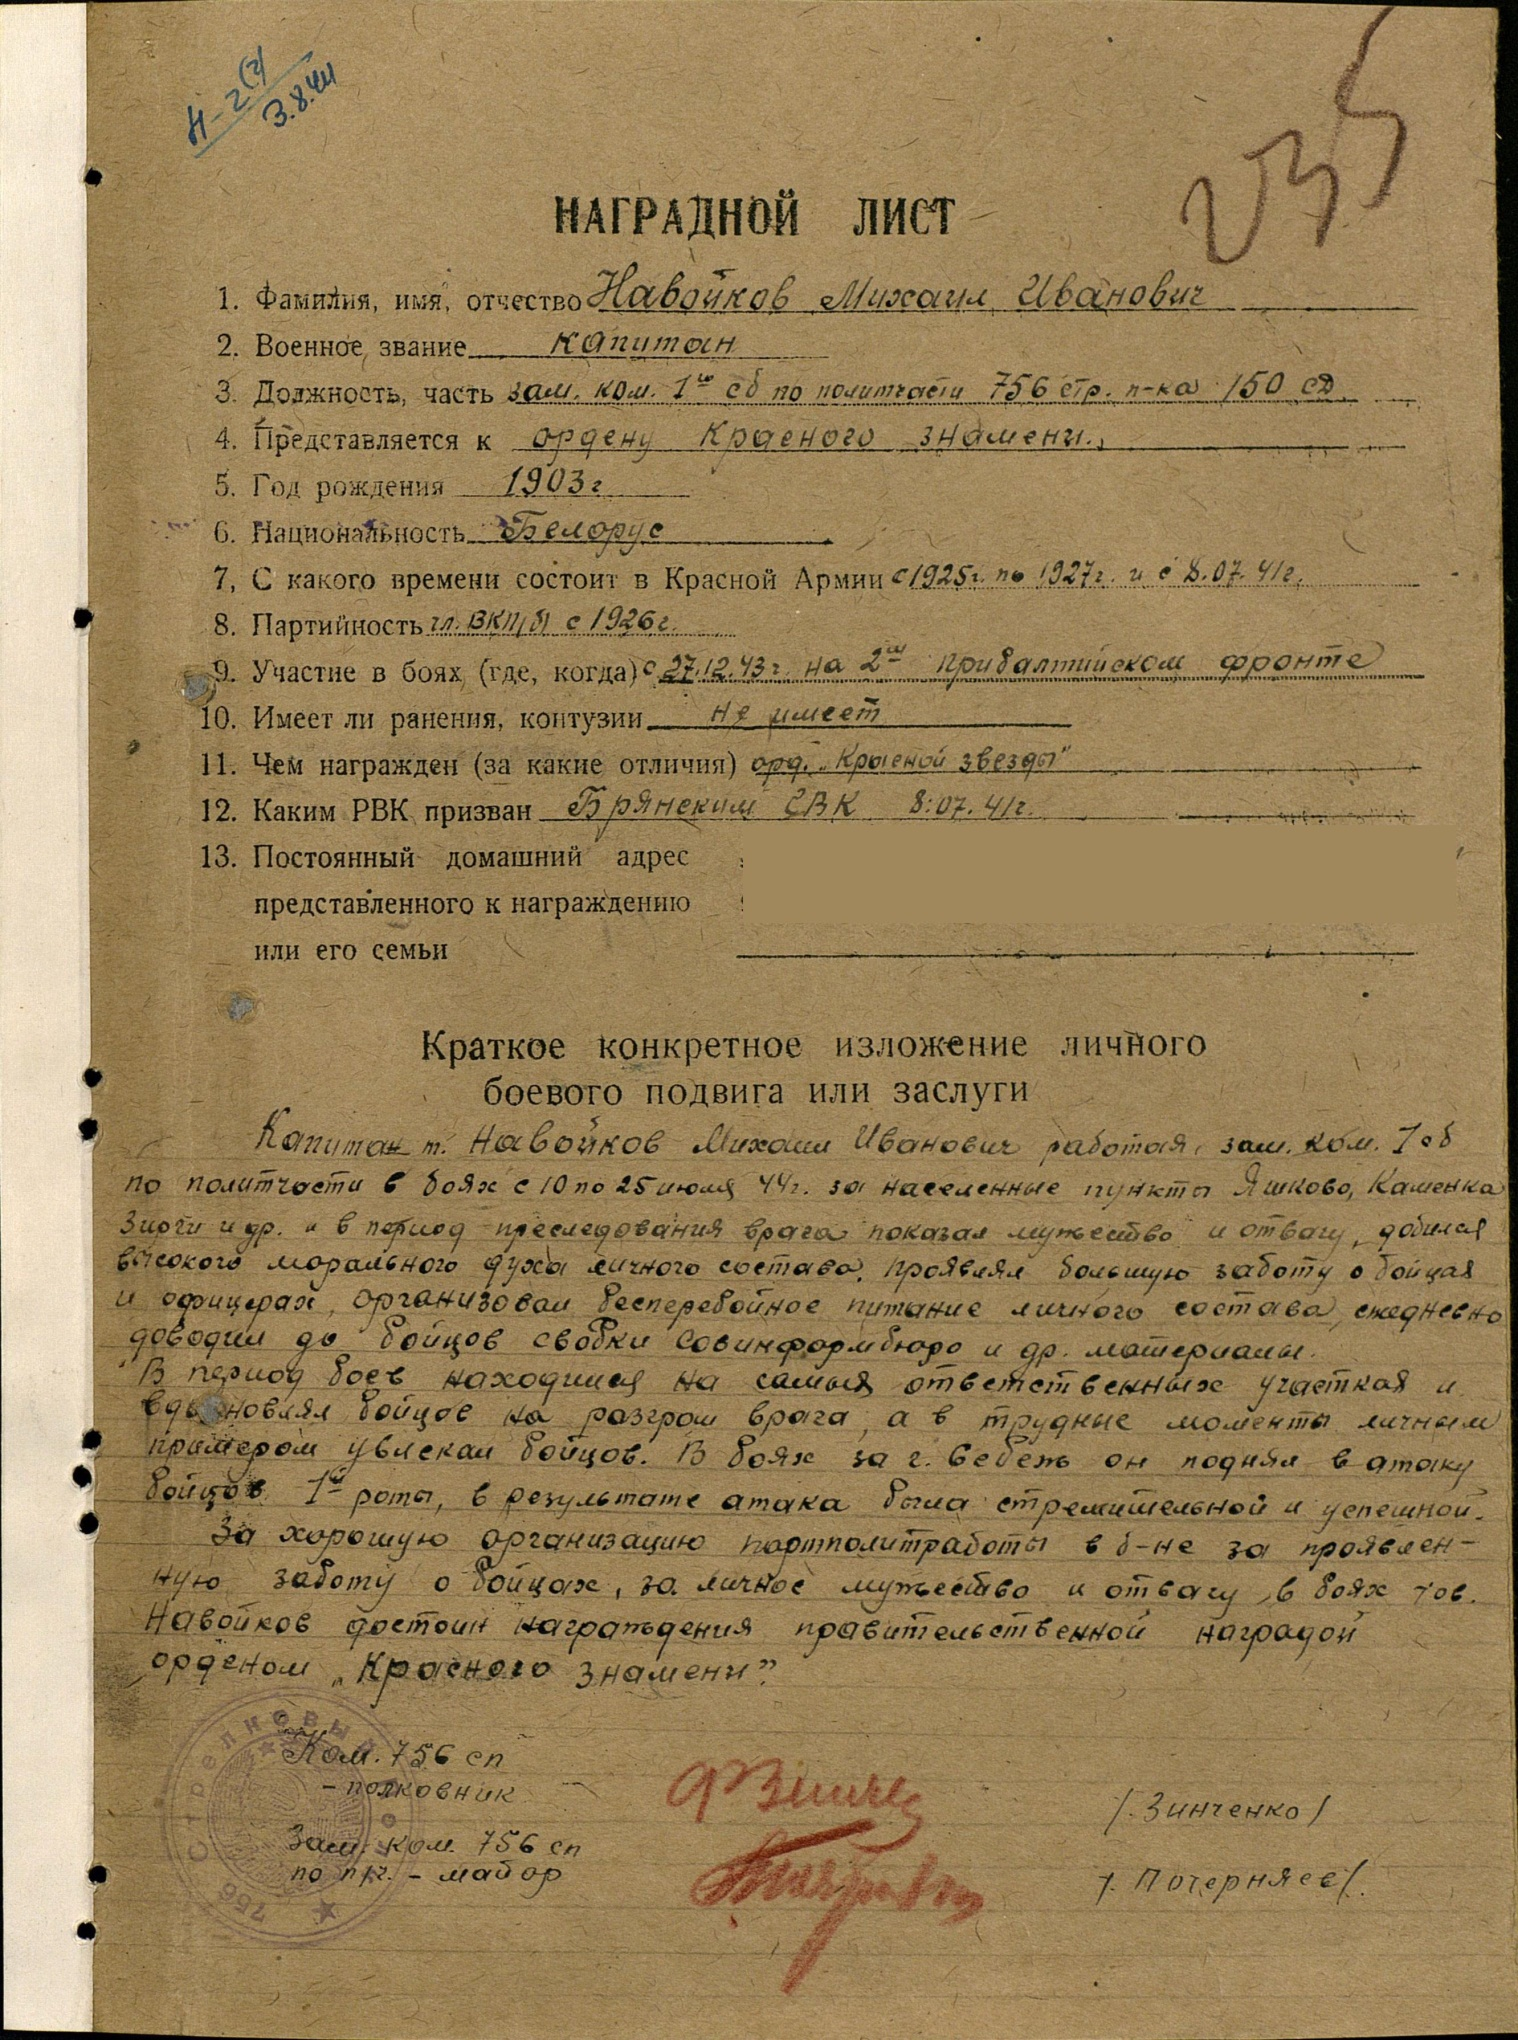 Н-2(2)
3.8.44
235
НАГРАДНОЙ ЛИСТ
1. Фамилия, имя, отчество Навойков Михаил Иванович
2. Военное звание капитан
3. Должность, часть зам. ком. 1го сб по политчасти 756 стр. п-ка 150 сд.
4. Представляется к ордену Красного знамени.
5. Год рождения 1903г
6. Национальность Белорус
7, С какого времени состоит в Красной Армии с 1925г. по 1927г. и с 8.07.41г.
8. Партийность чл. ВКП/б/ с 1926г.
9. Участие в боях (где, когда) с 27.12.43г. на 2ом прибалтийском фронте
10. Имеет ли ранения, контузии не имеет
11. Чем награжден (за какие отличия) орд. „Красной звезды"
12. Каким РВК призван Брянским СВК 8.07.41г.
13. Постоянный домашний адрес
представленного к награждению
или его семьи
Краткое конкретное изложение личного
боевого подвига или заслуги
Капитан т. Навойков Михаил Иванович работая зам. ком. 1 сб
по политчасти в боях с 10 по 25 июля 44г. за населенные пункты Яшково, Каменка
Зирги и др. и в период преследования врага показал мужество и отвагу, добился
высокого морального духа личного состава. Проявлял большую заботу о бойцах
и офицерах, организовал бесперебойное питание личного состава, ежедневно
доводил до бойцов сводки Совинформбюро и др. материалы.
В период боев находился на самых ответственных участках и
вдохновлял бойцов на разгром врага, а в трудные моменты личным
примером увлекал бойцов. В боях за г. Себеж он поднял в атаку
бойцов 1й роты, в результате атака была стремительной и успешной.
За хорошую организацию партполитработы в б-не за проявлен-
ную заботу о бойцах, за личное мужество и отвагу в боях тов.
Навойков достоин награждения правительственной наградой
орденом „Красного знамени".
Стрелковый
756
Ком. 756 сп
- полковник
/. Зинченко/
Зам. ком. 756 сп
по п/ч. - майор
/. Почерняев/.